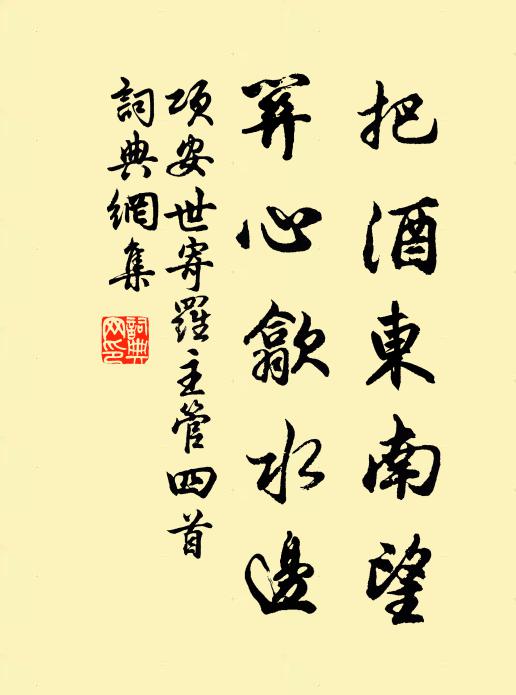 把酒東南望
羿心歙水邊
項安世寄羅主管四首
詞典網集
詞典网印